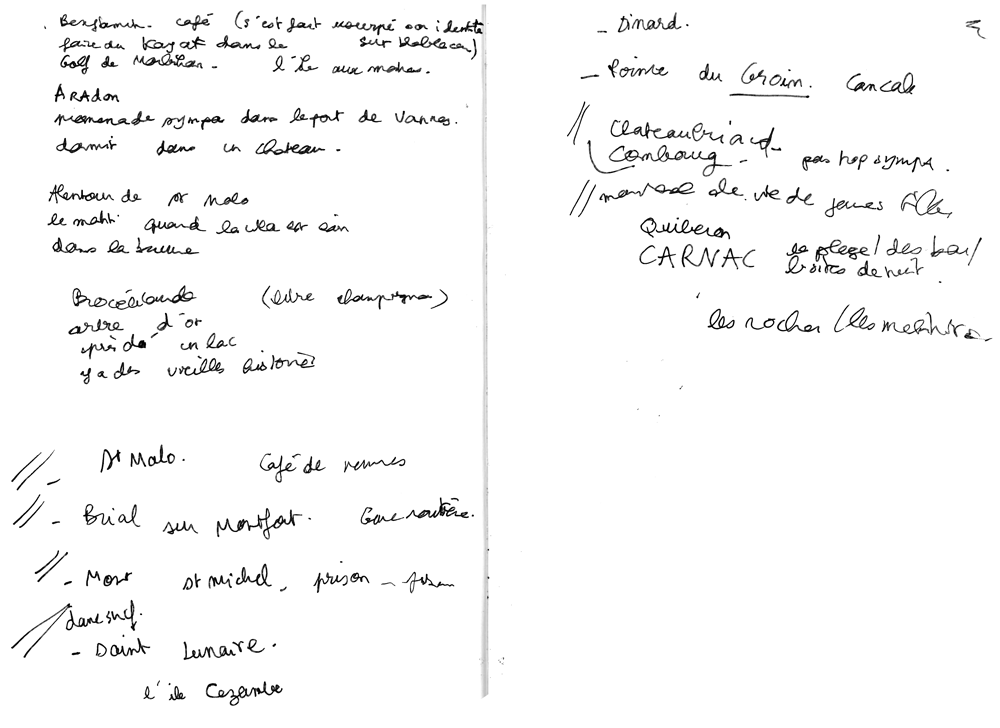 Benjamin. café (s'est fait usurpé son identité
faire du Kayat dans le sur
Golf de Morbihan. l'île aux moines.
ARAdon
promenade sympa dans le port de Vannes.
dormir dans un chateau.
Alentour de St Malo
le matin quand la vla est
dans la brume
Brocéliande (livre champignon)
arbre d'or
près de un lac
y a des vieilles histoires
- St Malo. Café de rennes
- Brial sur Montfort. Gare routière.
- Mont St michel - prison -
- Saint Lunaire.
l'ile Cezembe
- Dinard.
- Pointe du Groin. Cancale
Chateaubriand
Combourg - pas trop sympa.
de vie de jeunes filles
Quiberon
CARNAC la plage / des bar /
boites de nuit.
les rocher / les menhirs.